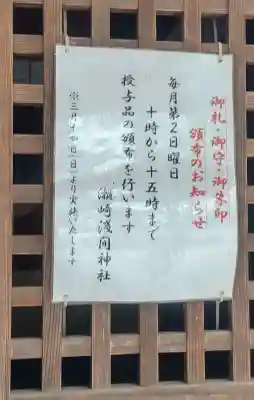 御札・御守・御朱印
頒布のお知らせ
毎月第2日曜日
十時から十五時まで
授与品の頒布を行います
瀬崎浅間神社
※三月十四日(日)より実施いたします